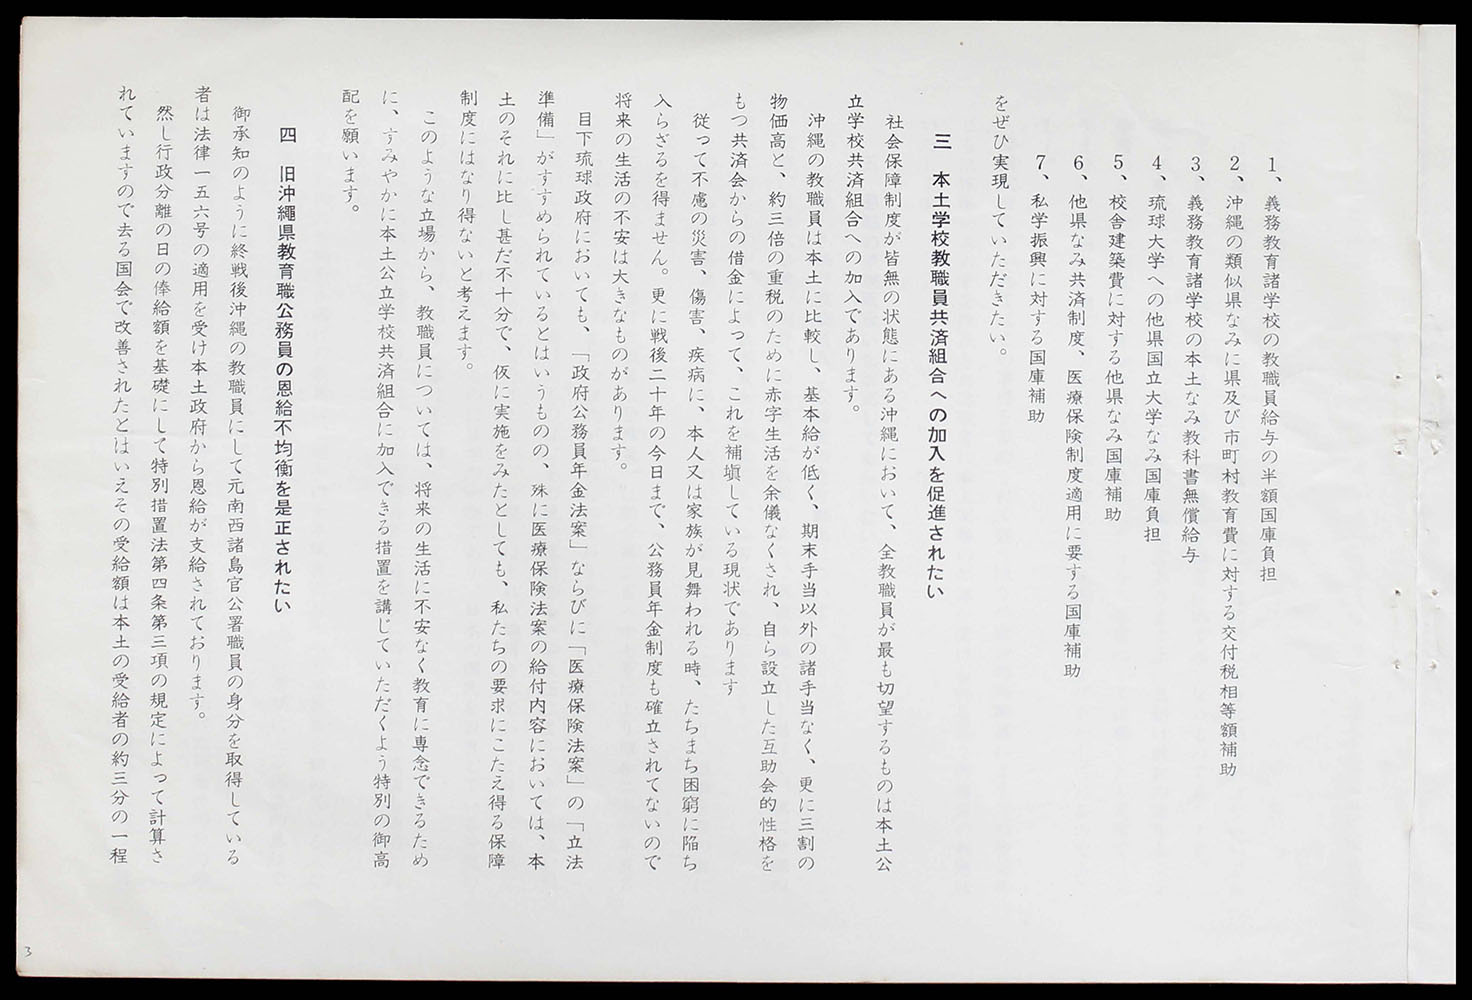 1、義務教育諸学校の教職員給与の半額国庫負担
2、沖縄の類似県なみに県及び市町村教育費に対する交付税相等額補助
3、義務教育諸学校の本土なみ教科書無償給与
4、琉球大学への他県国立大学なみ国庫負担
5、校舎建築費に対する他県なみ国庫補助
6、他県なみ共済制度、医療保険制度適用に要する国庫補助
7、私学振興に対する国庫補助
をぜひ実現していただきたい。
三　本土学校教職員共済組合への加入を促進されたい
社会保障制度が皆無の状態にある沖縄において、全教職員が最も切望するものは本土公
立学校共済組合への加入であります。
沖縄の教職員は本土に比較し、基本給が低く、期末手当以外の諸手当なく、更に三割の
物価高と、約三倍の重税のために赤字生活を余儀なくされ、自ら設立した互助会的性格を
もつ共済会からの借金によって、これを補塡している現状であります
従って不慮の災害、傷害、疾病に、本人又は家族が見舞われる時、たちまち困窮に陥ち
入らざるを得ません。更に戦後二十年の今日まで、公務員年金制度も確立されてないので
将来の生活の不安は大きなものがあります。
目下琉球政府においても、「政府公務員年金法案」ならびに「医療保険法案」の「立法
準備」がすすめられているとはいうものの、殊に医療保険法案の給付内容においては、本
土のそれに比し甚だ不十分で、仮に実施をみたとしても、私たちの要求にこたえ得る保障
制度にはなり得ないと考えます。
このような立場から、教職員については、将来の生活に不安なく教育に専念できるため
に、すみやかに本土公立学校共済組合に加入できる措置を講じていただくよう特別の御高
配を願います。
四　旧沖縄県教育職公務員の恩給不均衡を是正されたい
御承知のように終戦後沖縄の教職員にして元南西諸島官公署職員の身分を取得している
者は法律一五六号の適用を受け本土政府から恩給が支給されております。
然し行政分離の日の俸給額を基礎にして特別措置法第四条第三項の規定によって計算さ
れていますので去る国会で改善されたとはいえその受給額は本土の受給者の約三分の一程
3